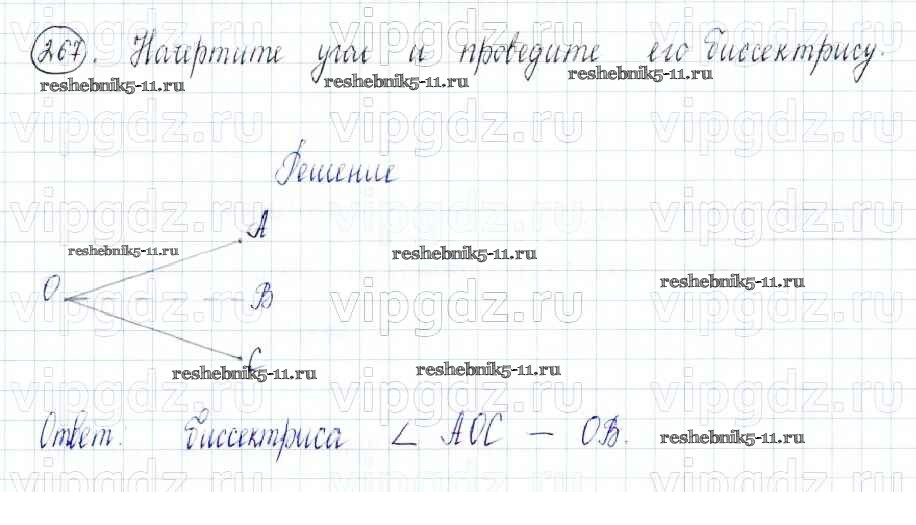 267. Начертите угол и проведите его биссектрису.
reshebnik5-11.ru reshebnik5-11.ru reshebnik5-11.ru
vipgdz.ru vipgdz.ru vipgdz.ru
Решение
A
vipgdz.ru vipgdz.ru vipgdz.ru
reshebnik5-11.ru reshebnik5-11.ru
reshebnik5-11.ru
O B
vipgdz.ru vipgdz.ru vipgdz.ru
C
reshebnik5-11.ru reshebnik5-11.ru
vipgdz.ru vipgdz.ru vipgdz.ru
Ответ. биссектриса ∠ AOC — OB.
reshebnik5-11.ru
vipgdz.ru vipgdz.ru vipgdz.ru